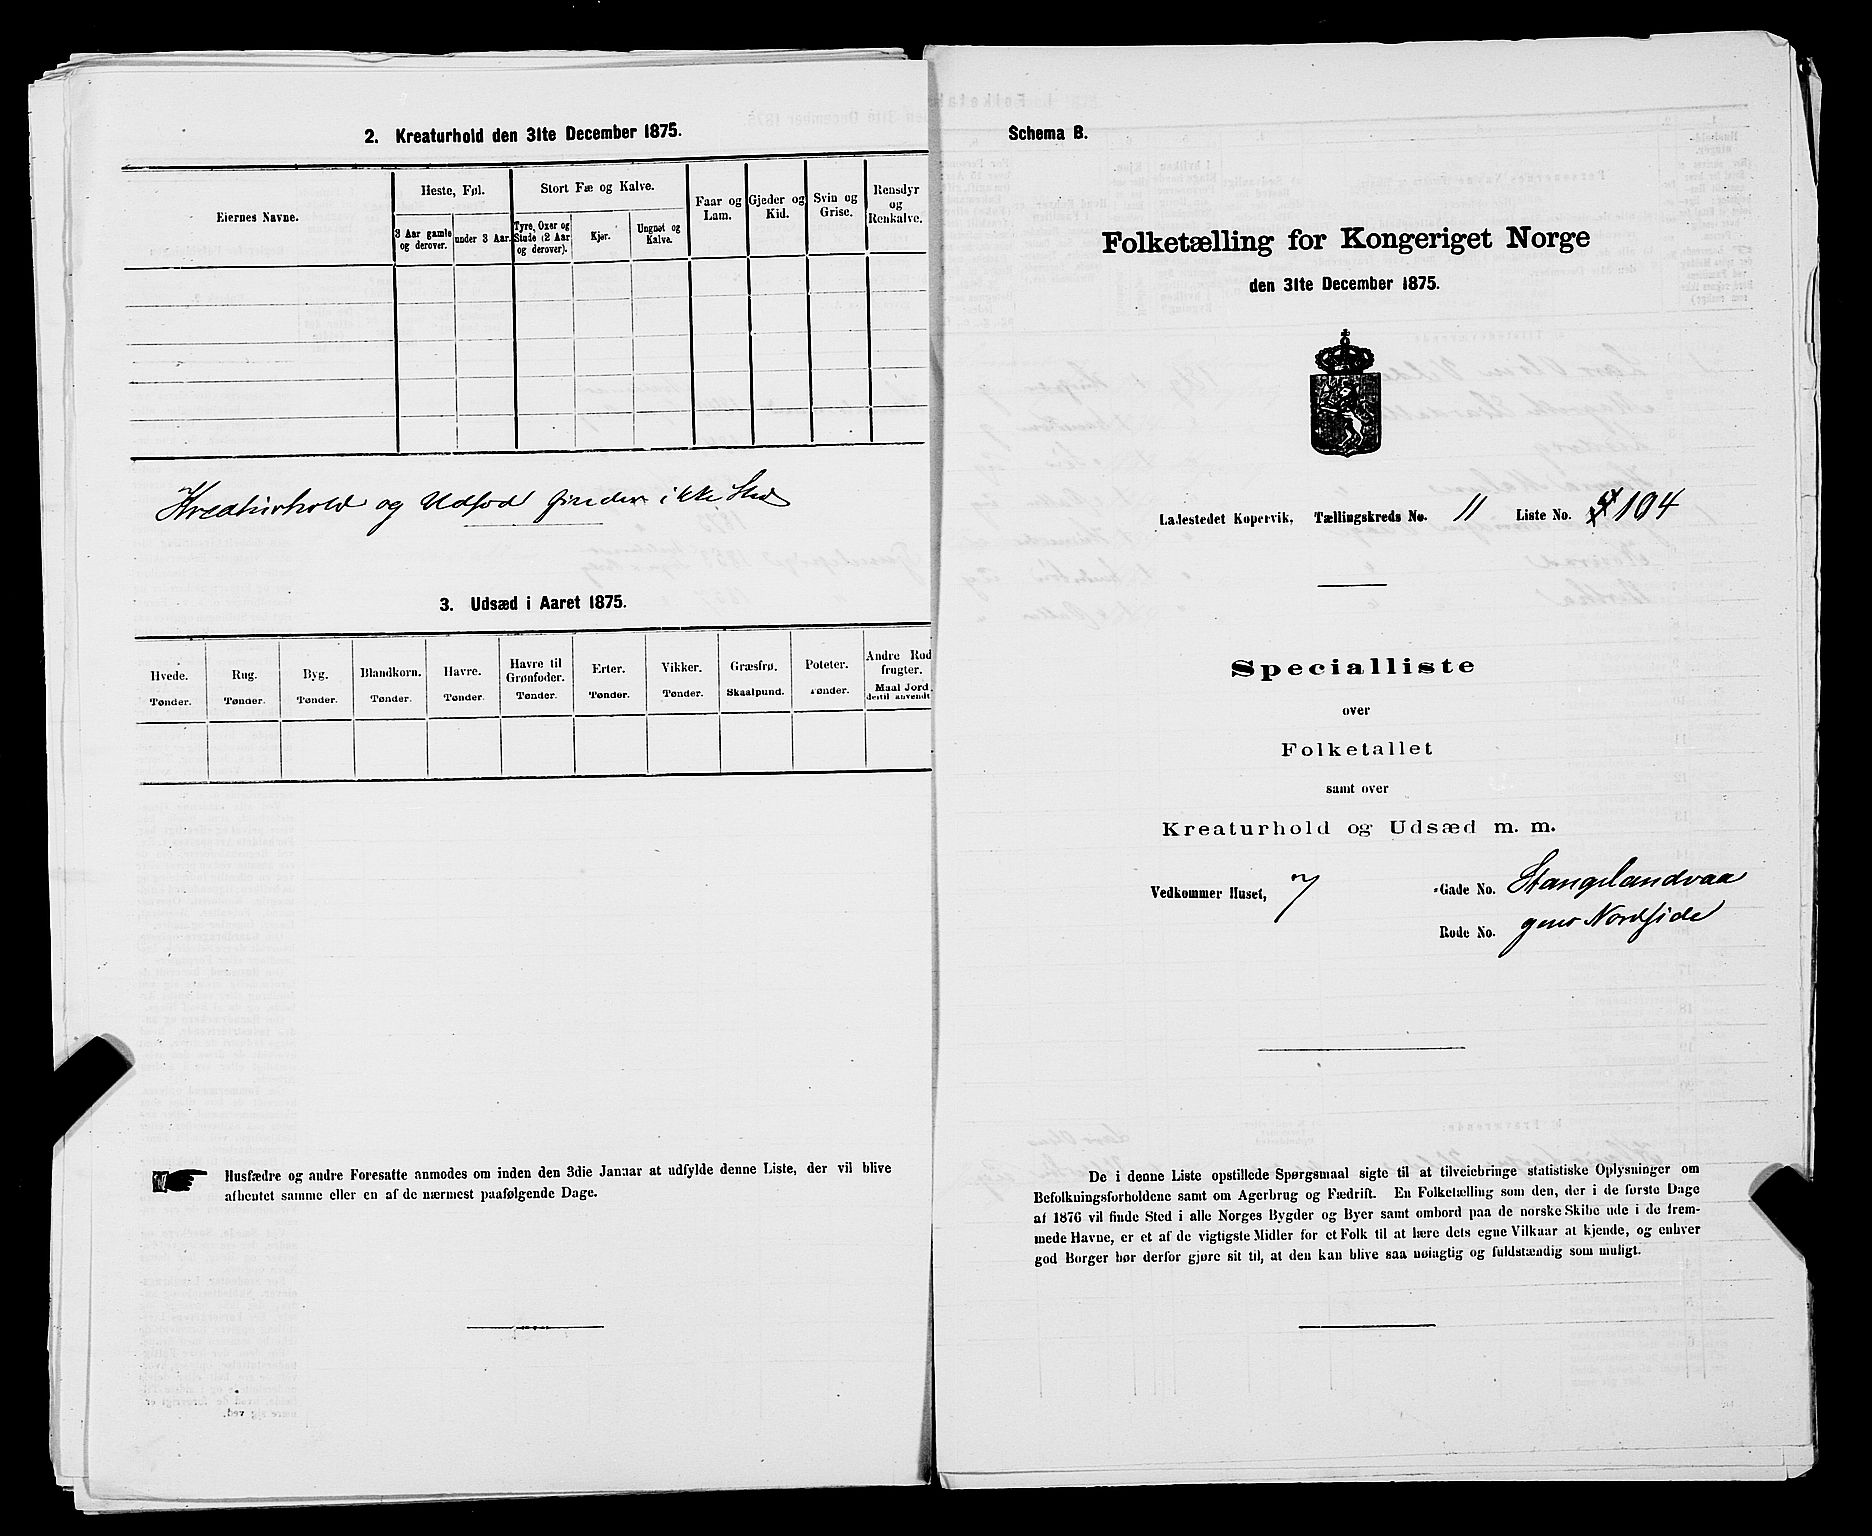 2. Kreaturhold den 31te December 1875.
Eiernes Navne.
Heste, Føl.
Stort Fæ og Kalve.
Faar og Lam.
Gjeder og Kid.
Svin og Grise.
Rensdyr og Renkalve.
3 Aar gamle og derover.
under 3 Aar.
Tyre, Oxer og Stude (2 Aar og derover).
Kjør.
Ungnøt og Kalve.
Kreaturhold og Udsæd finder ikke Sted
3. Udsæd i Aaret 1875.
Hvede.
Rug.
Byg.
Blandkorn.
Havre.
Havre til Grønfoder.
Erter.
Vikker.
Græsfrø.
Poteter.
Andre Rodfrugter.
Tønder.
Tønder.
Tønder.
Tønder.
Tønder.
Tønder.
Tønder.
Tønder.
Skaalpund.
Tønder.
Maal Jord dertil anvendt.
Husfædre og andre Foresatte anmodes om inden den 3die Januar at udfylde denne Liste, der vil blive
afhentet samme eller en af de nærmest paafølgende Dage.
Schema B.
Folketælling for Kongeriget Norge
den 31te December 1875.
Ladestedet Kopervik, Tællingskreds No. 11 Liste No. 104
Specialliste
over
Folketallet
samt over
Kreaturhold og Udsæd m. m.
Vedkommer Huset, 7 -Gade No. Stangelandvaa
Rode No. gens Nordside
De i denne Liste opstillede Spørgsmaal sigte til at tilveiebringe statistiske Oplysninger om
Befolkningsforholdene samt om Agerbrug og Fædrift. En Folketælling som den, der i de første Dage
af 1876 vil finde Sted i alle Norges Bygder og Byer samt ombord paa de norske Skibe ude i de frem-
mede Havne, er et af de vigtigste Midler for et Folk til at lære dets egne Vilkaar at kjende, og enhver
god Borger bør derfor gjøre sit til, at den kan blive saa nøiagtig og fuldstændig som muligt.